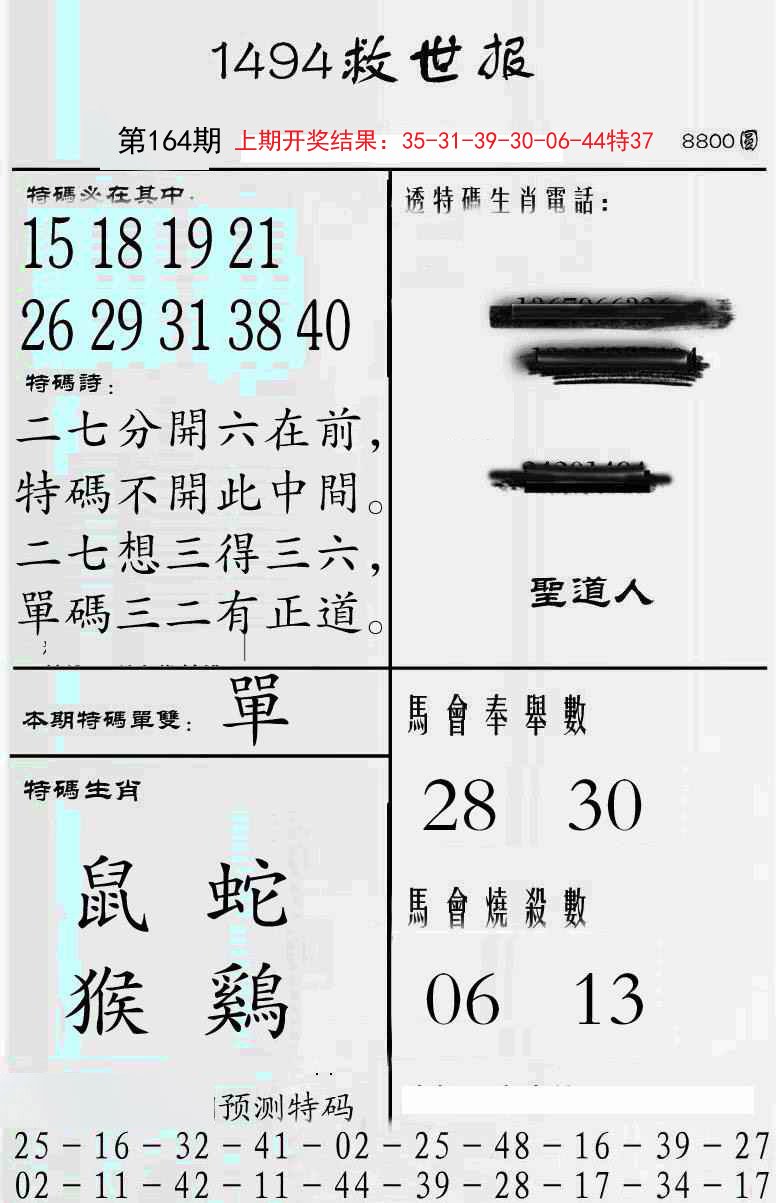 1494救世报
第164期 上期开奖结果：35-31-39-30-06-44特37 8800圆
特碼必在其中.
15 18 19 21
26 29 31 38 40
特碼詩：
二七分開六在前，
特碼不開此中間。
二七想三得三六，
單碼三二有正道。
透特碼生肖電話：
聖道人
本期特碼單雙：單
特碼生肖
鼠 蛇
猴 鷄
馬會奉舉數
28 30
馬會燒殺數
06 13
预测特码
25-16-32-41-02-25-48-16-39-27
02-11-42-11-44-39-28-17-34-17